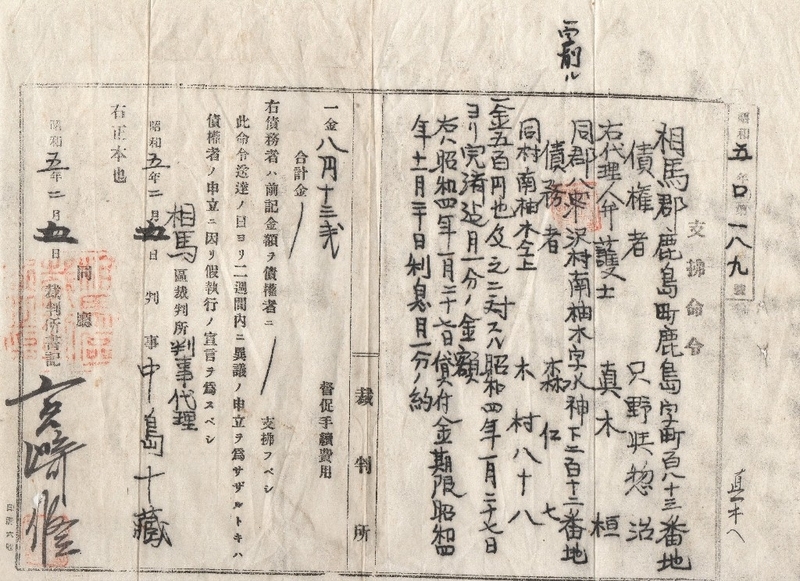 昭和五年ロ第一八九號
支拂命令
相馬郡鹿島町鹿島字町百八十三番地
債権者 只野 惣治
右代理人弁護士 真木 桓
同郡 沢村南柚木字水神下二百十二番地
債務者 森 仁七
同村南柚木仝上
木村八十八
一金五百円也及之ニ対スル昭和四年一月二十七日
ヨリ完済迠月一分ノ金額
右ハ昭和四年一月二十七日貸付金期限昭和四
年十二月二十日利息月一分ノ約
裁判所
一金八円十三戋 督促手續費用
合計金
右債務者ハ前記金額ヲ債權者ニ 支拂フベシ
此命令送達ノ日ヨリ二週間内ニ異議ノ申立ヲ爲サザルトキハ
債權者ノ申立ニ因リ假執行ノ宣言ヲ爲スベシ
相馬區裁判所判事代理
昭和五年二月五日 判事 中島十藏
右正本也
昭和五年二月五日
同廳
裁判所書記
真木へ